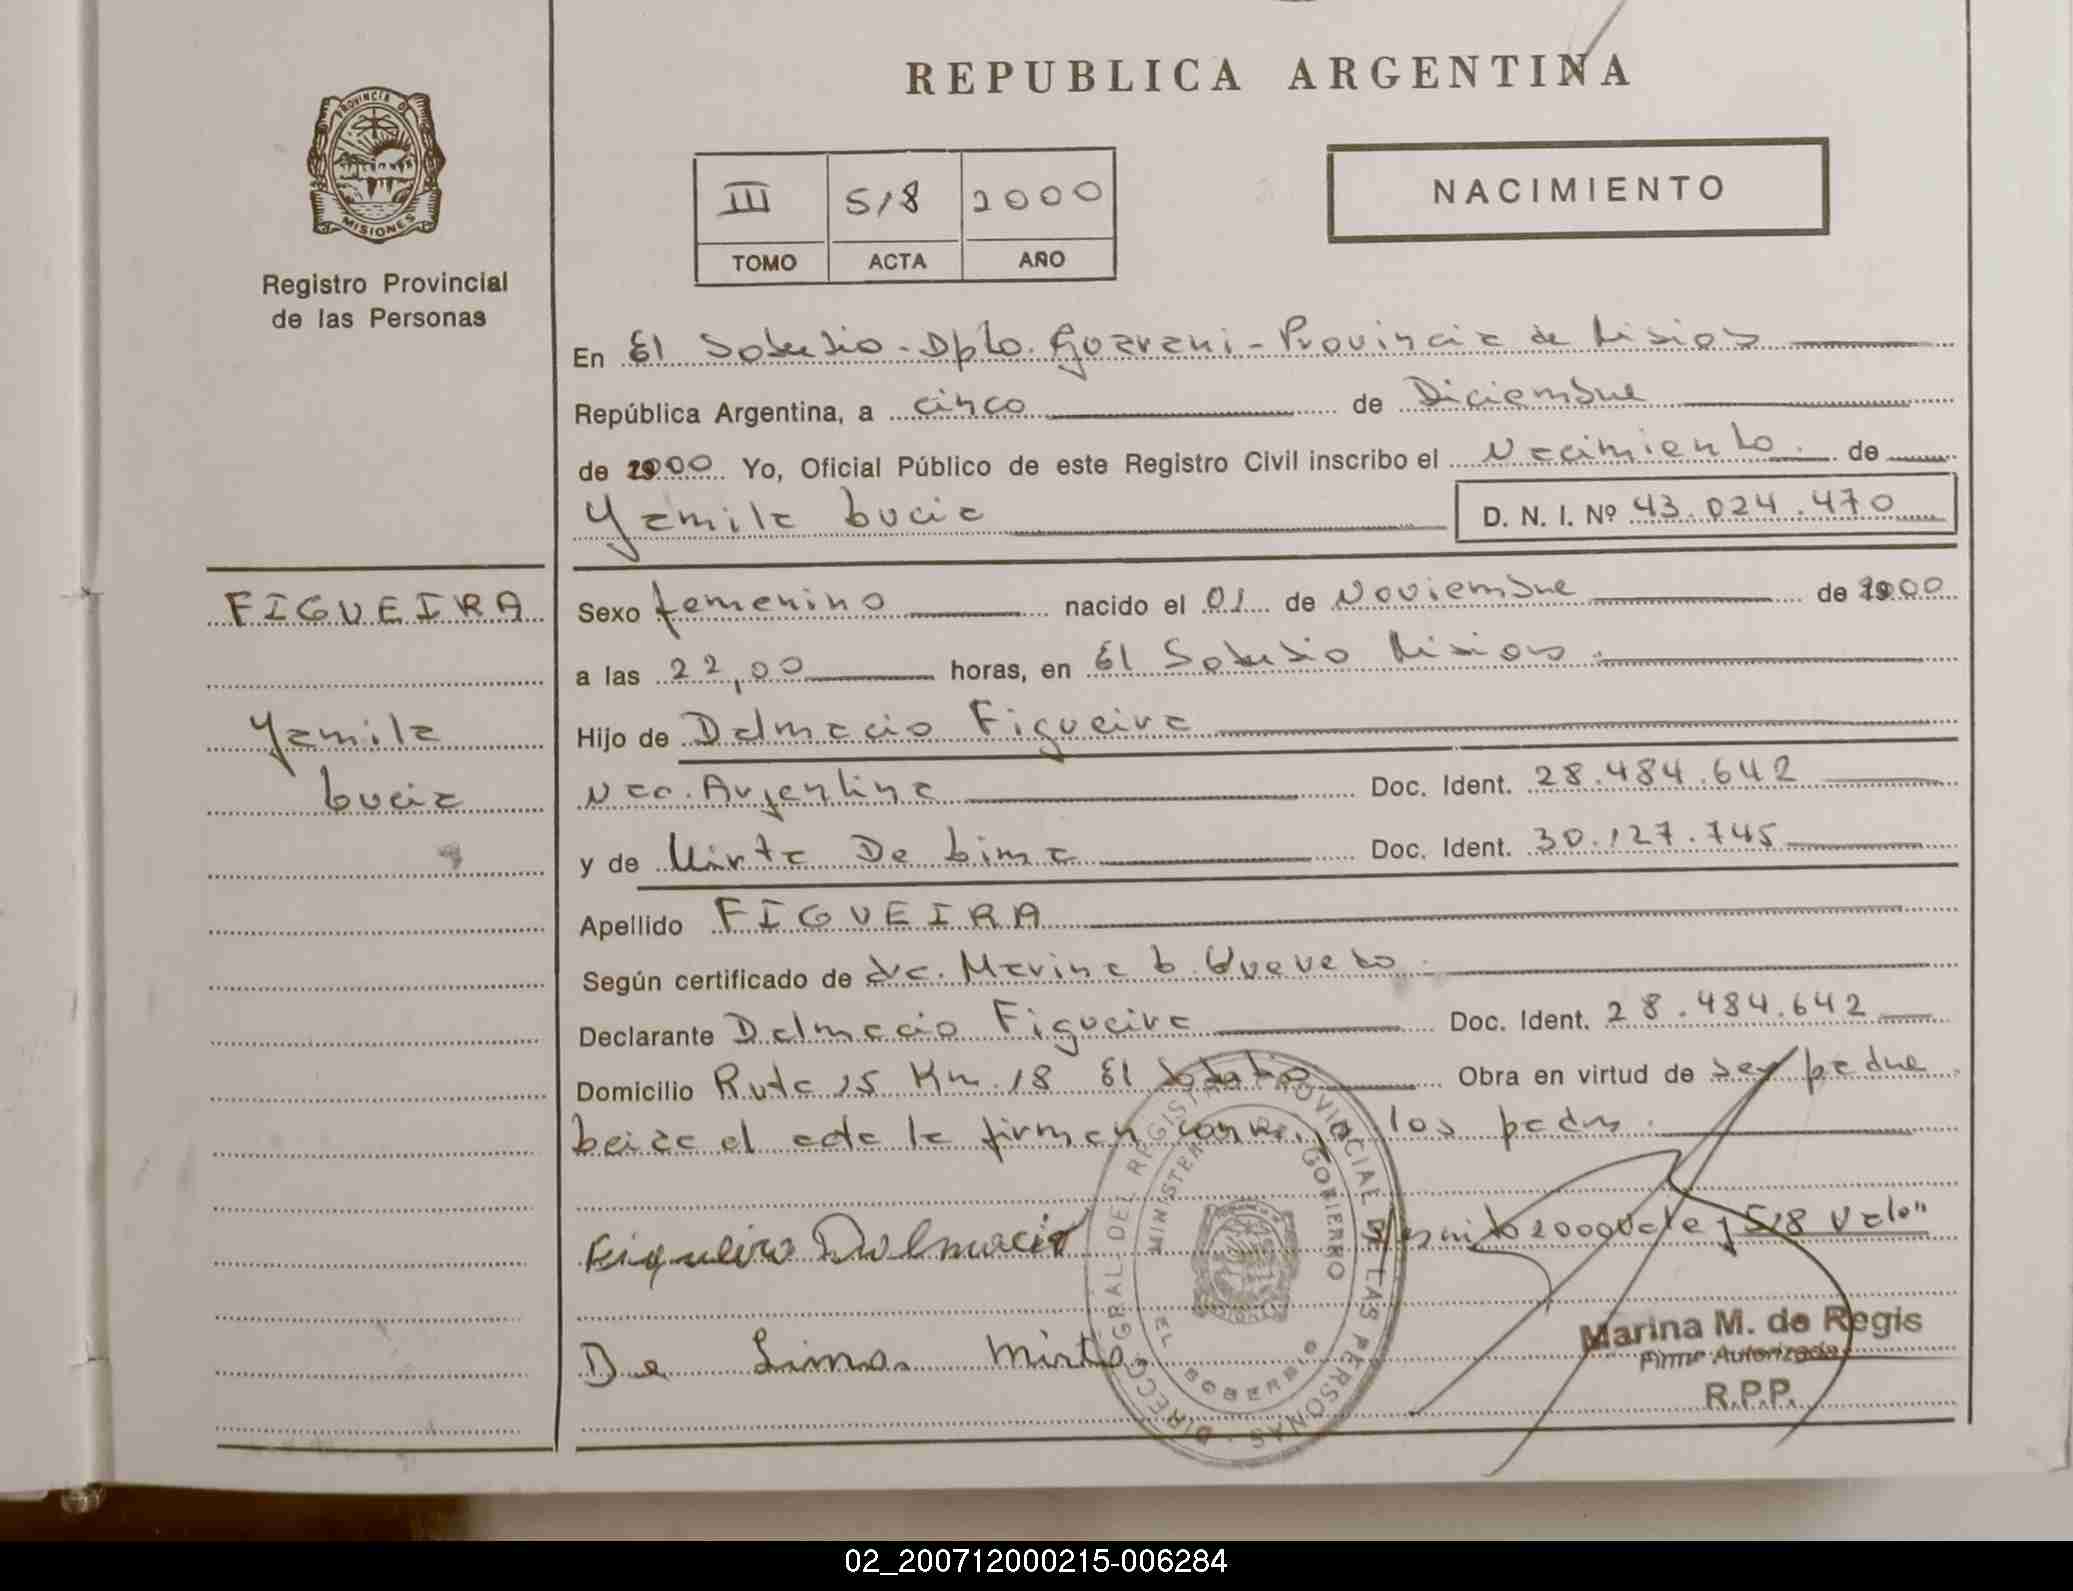 REPUBLICA ARGENTINA
PROVINCIA DE
MISIONES
Registro Provincial
de las Personas
III 518 2000
TOMO ACTA AÑO
NACIMIENTO
En El Soberbio - Dpto. Guarani - Provincia de Misiones
República Argentina, a cinco de Diciembre
de 2000 Yo, Oficial Público de este Registro Civil inscribo el Nacimiento. de
Yamila Lucia D. N. I. Nº 43.024.470
FIGUEIRA
Yamila
Lucia
Sexo femenino nacido el 01 de Noviembre de 2000
a las 22,00 horas, en El Soberbio Misiones.
Hijo de Dalmacio Figueira
Nac. Argentina Doc. Ident. 28.484.642
y de Mirta De Lima Doc. Ident. 30.127.745
Apellido FIGUEIRA
Según certificado de Marina
Declarante Dalmacio Figueira Doc. Ident. 28.484.642
Domicilio Ruta 15 Km. 18 El Soberbio Obra en virtud de ser padre
el acta la firman los padres.
Figueira Dalmacio
2000 Vale y 518 Vale"
De Lima Mirta
DIRECC. GRAL. DEL REGISTRO PROVINCIAL DE LAS PERSONAS
MINISTERIO GOBIERNO
EL SOBERBIO
Marina M. de Regis
Firma Autorizada
R.P.P.
02_200712000215-006284